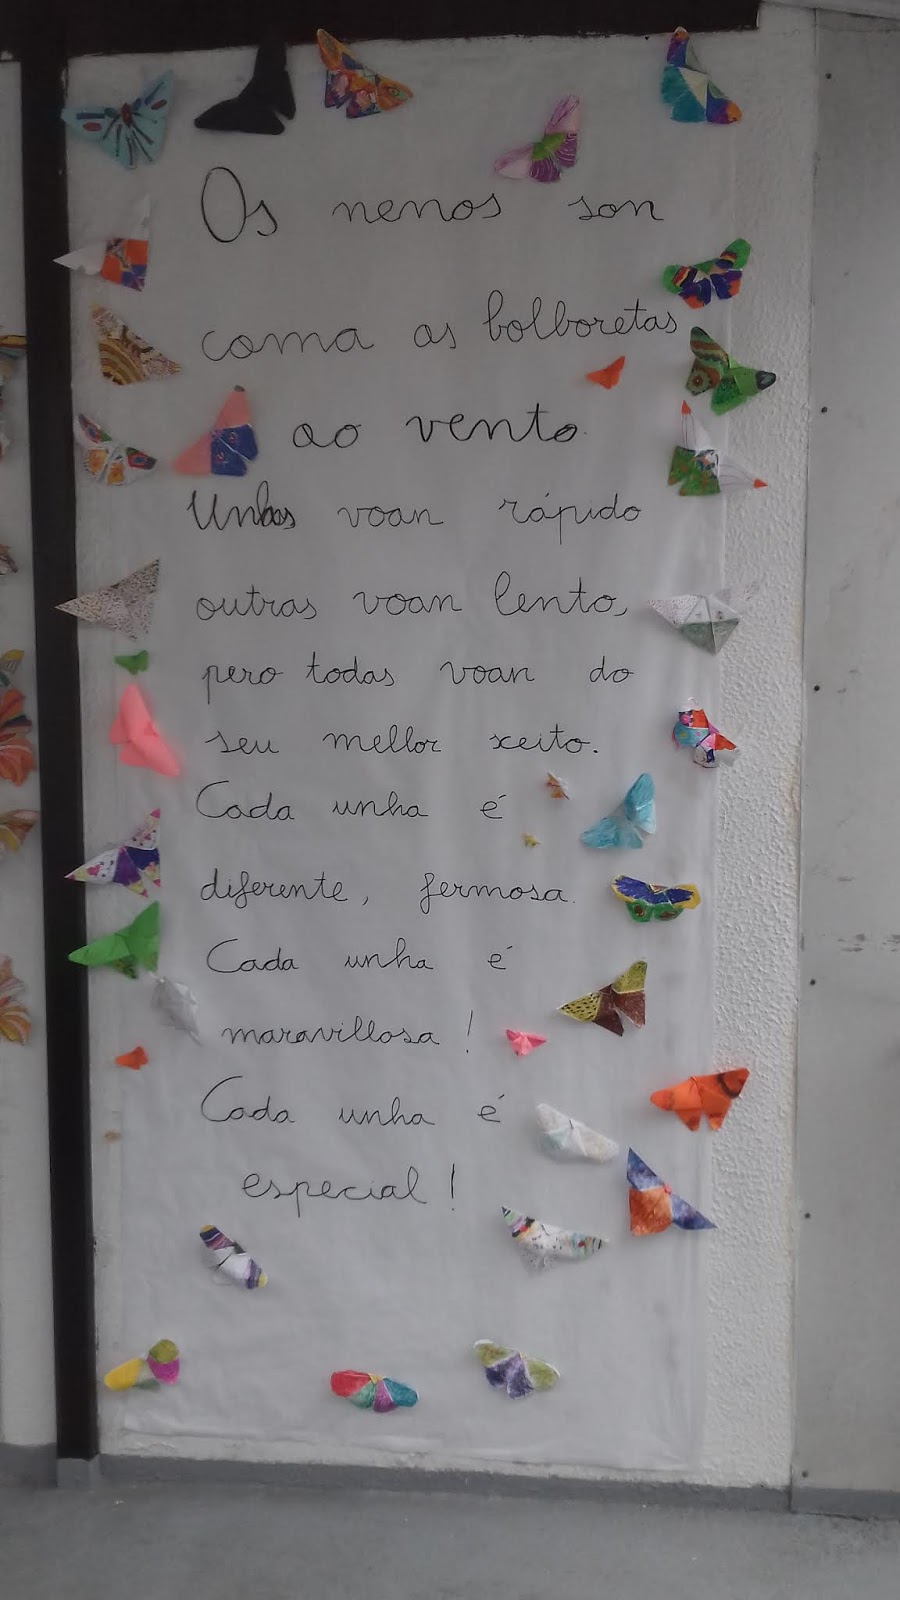 Os nenos son
coma as bolboretas
ao vento.
Unhas voan rápido
outras voan lento,
pero todas voan do
seu mellor xeito.
Cada unha é
diferente, fermosa.
Cada unha é
maravillosa!
Cada unha é
especial!